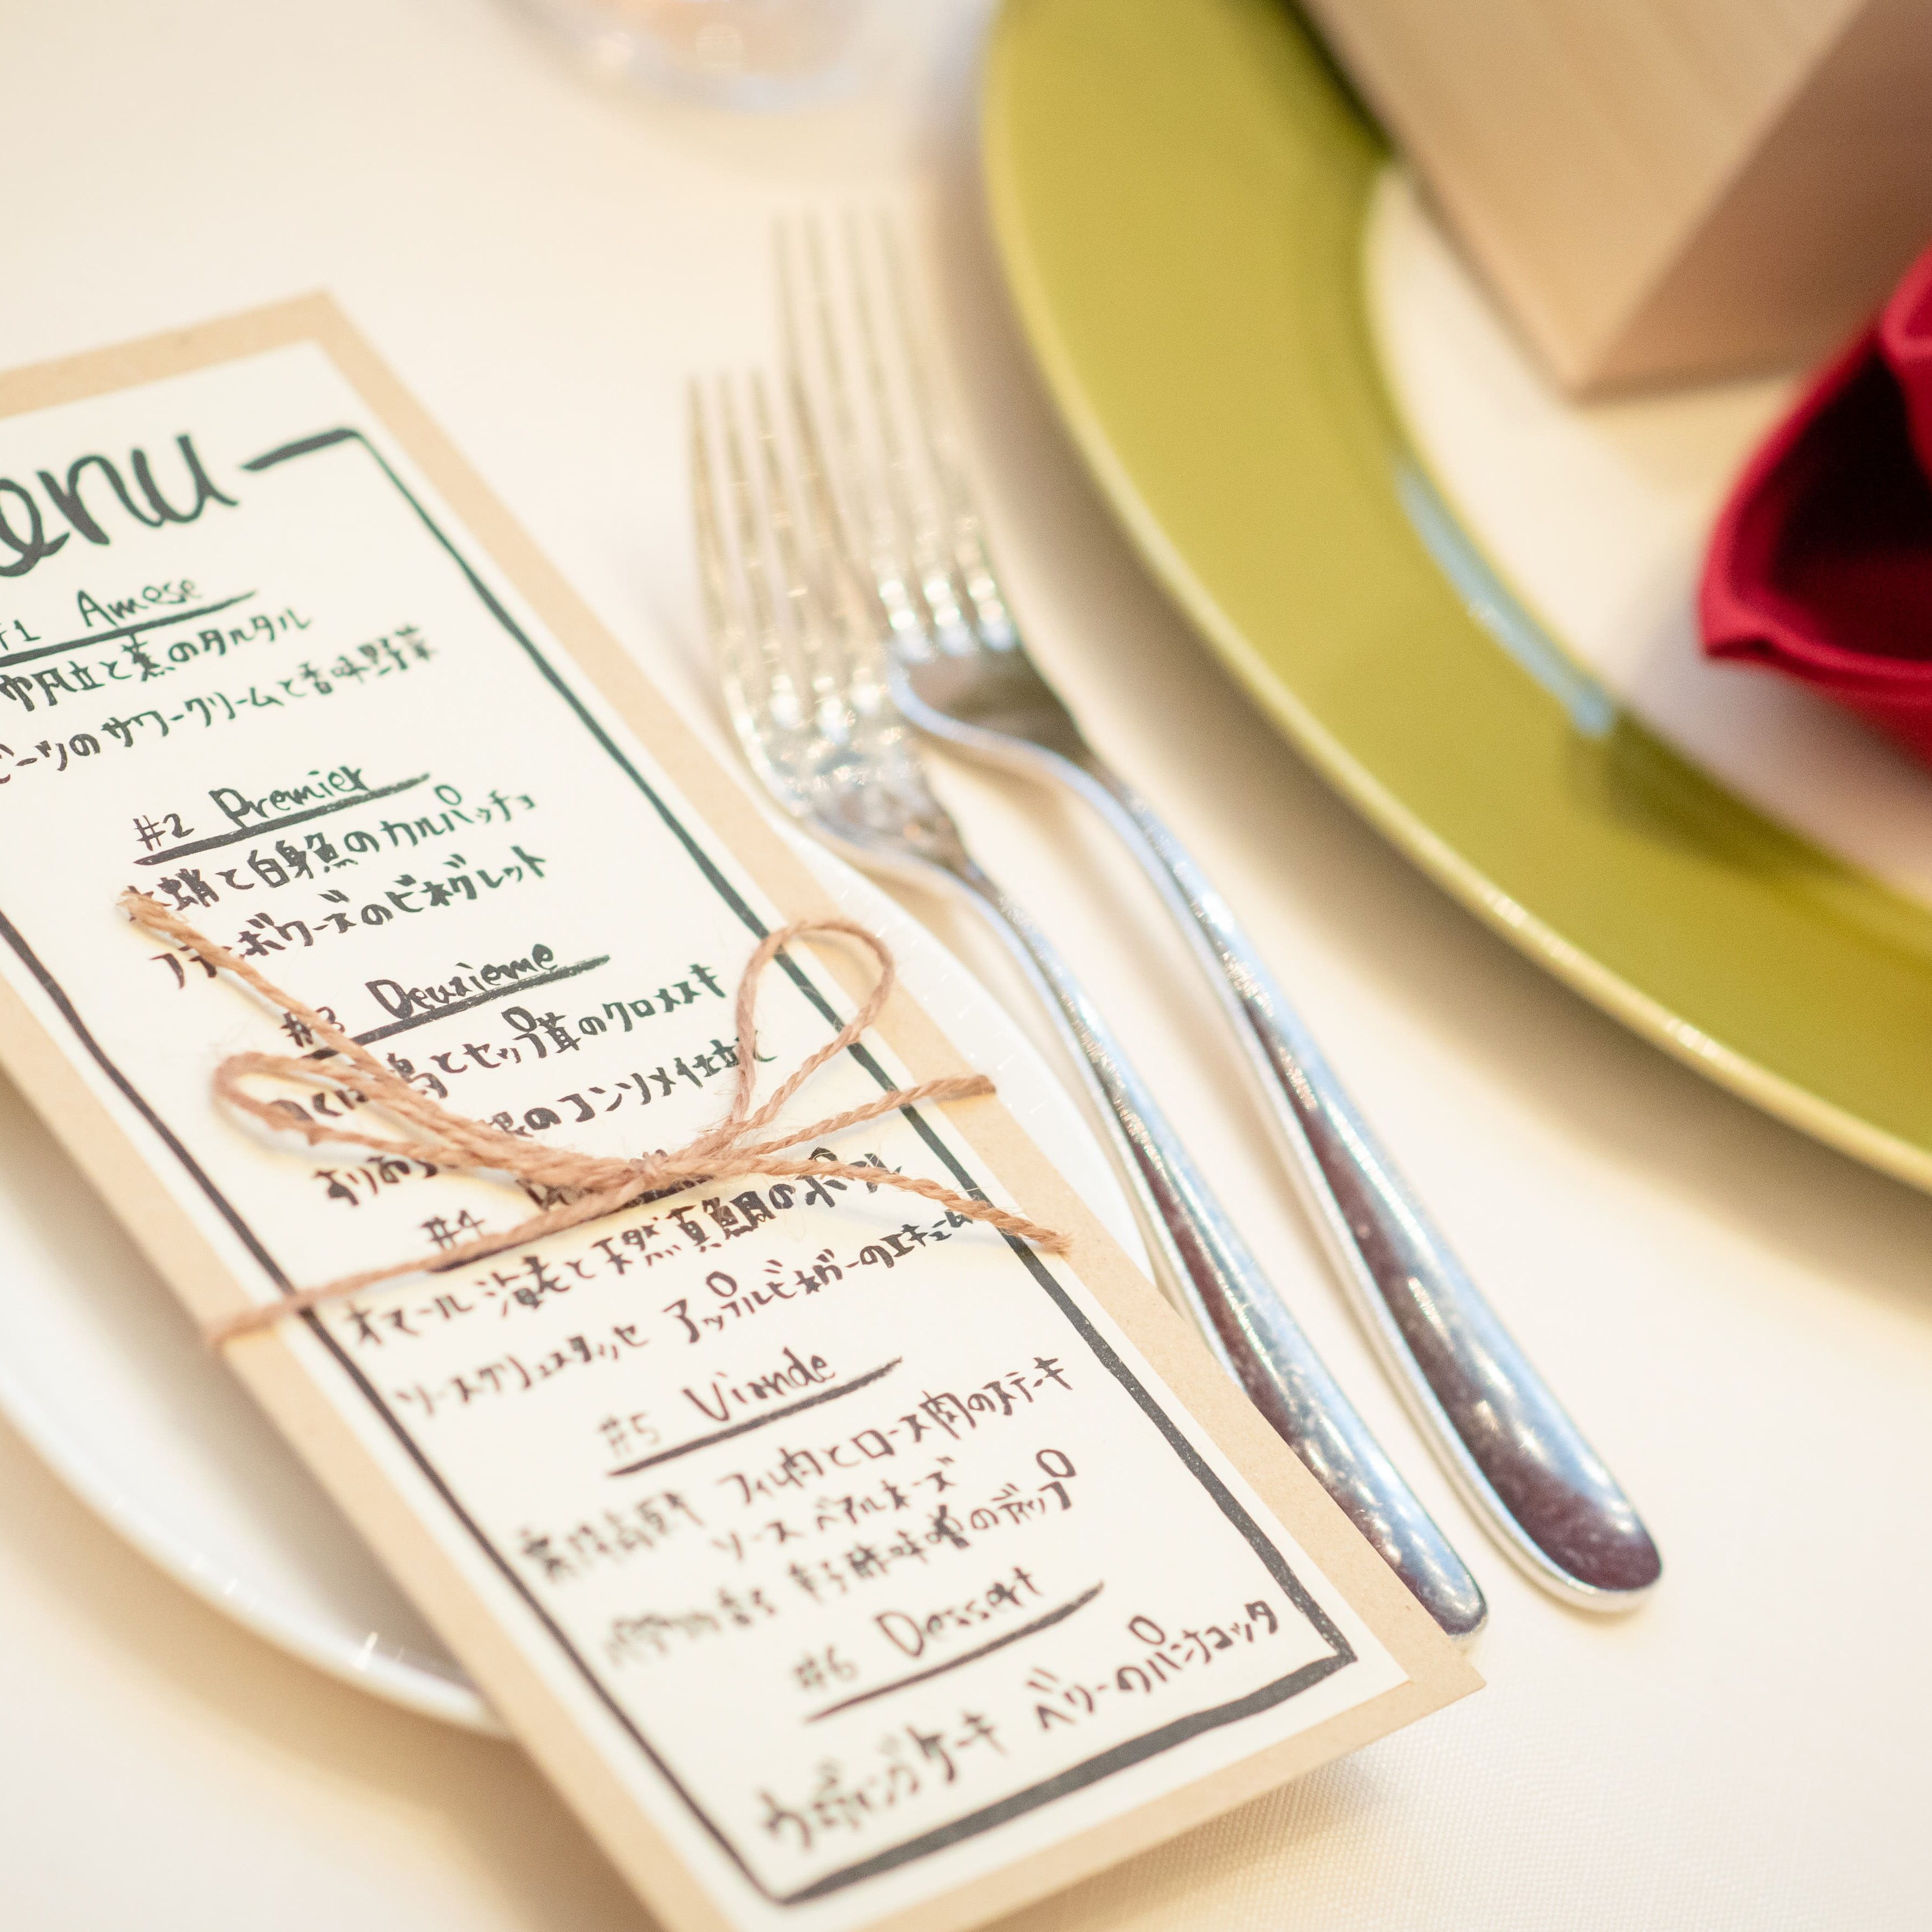 enu
#1 Amese
帆立と蕪のタルタル
ビーツのサワークリームと香味野菜
#2 Premier
蛸と白身魚のカルパッチョ
フランボワーズのビネグレット
#3 Deuxieme
つくね鳥とセップ茸のクロメスキ
根のコンソメ仕立て
すりおろ
#4
オマール海老と天然真鯛のポワレ
ソースクリュスタッセ アップルビネガーのエキューム
#5 Viande
フィレ肉とロース肉のステーキ
ソースベアルネーズ
辛子酢味噌のディップ
#6 Dessert
ウェディングケーキ ベリーのパンナコッタ